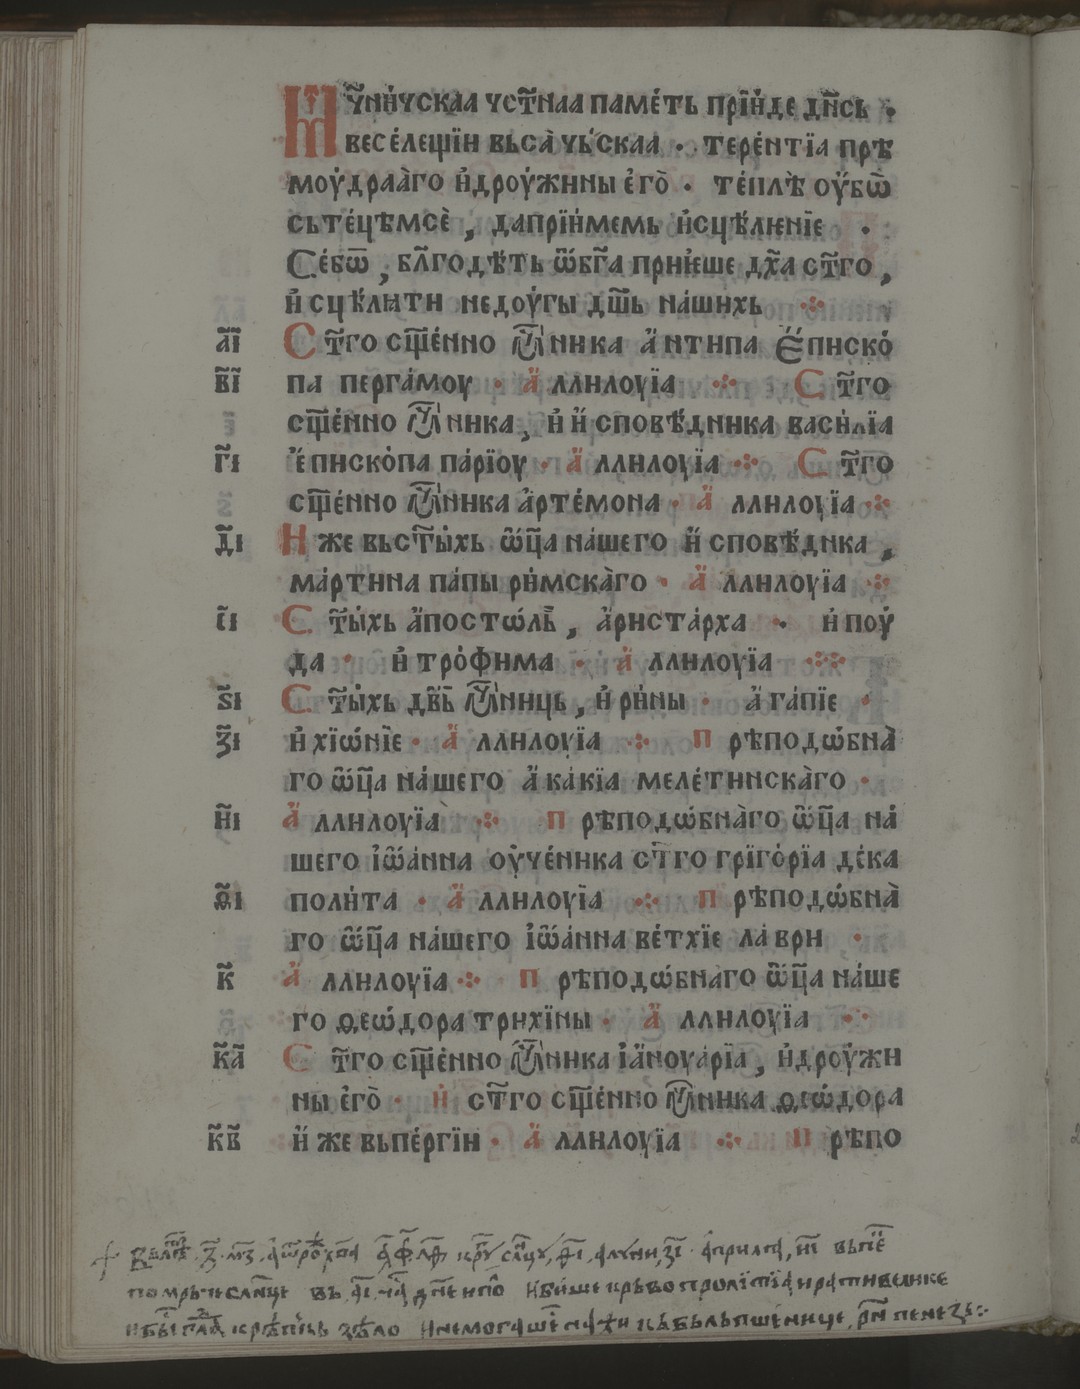 Мч҃ни́чскаа чст҃наа паме́ть прїи́де дн҃сь ·
весе́лещїи вьсà чьⷭ҇скаа · тере́нтїа прѣ
моу́драа̀го и҆дроу́жины є҆гò · те́плѣ оу҆́бѡ
сьте́цѣмсѐ , дапрїи́мемь и҆сцѣ́лѥнїе ·
Се́бѡ , бл҃годѣ́ть ѿбг҃а приѥше дх҃а ст҃го ,
и҆сцѣ́лити недоу́гы дш҃ь на́шихь ⁘
а҃ї Ст҃го сщ҃е́нно мч҃ника а҆́нтипа є҆писко́
в҃ї па перга́моу · а҆ллилоуїа ⁘ Ст҃го
сщ҃е́нно мч҃ника , и҆ и҆сповѣ́дника васи́лїа
г҃ї є҆писко́па па́рїоу · а҆ллилоуїа ⁘ Ст҃го
сщ҃е́нно мч҃ника а҆рте́мона · а҆ллилоуїа ⁘
д҃ї Иже вьст҃ы́хь ѿц҃а на́шего и҆сповѣ́дника ,
ма́ртина па́пы ри́мскаго · а҆ллилоуїа ⁘
є҃ї Ст҃ы́хь а҆посто́ль , а҆риста́рха · и҆ поу́
да · и҆ тро́фима · а҆ллилоуїа ⁘
ѕ҃ї Ст҃ы́хь дв҃ь мч҃ниць , и҆ри́ны · а҆га́пїе ·
з҃ї и҆ хїѡ́нїе · а҆ллилоуїа ⁘ прѣподѡ́бна
го ѿц҃а на́шего а҆ка́кїа меле́тинскаго ·
и҃ї а҆ллилоуїа ⁘ прѣподѡ́бнаго ѿц҃а на́
шего їѡа́нна оу҆че́ника ст҃го грїго́рїа де́ка
ѳ҃ї поли́та · а҆ллилоуїа ⁘ прѣподѡ́бна
го ѿц҃а на́шего їѡа́нна ве́тхїе ла́ври ·
к҃ а҆ллилоуїа ⁘ прѣподѡ́бнаго ѿц҃а на́ше
го ѳеѡ́дора трихїны · а҆ллилоуїа ⁘
к҃а Ст҃го сщ҃е́нно мч҃ника їа҆ноуа́рїа , и҆дроу́жи
ны є҆гò · и҆ ст҃го сщ҃е́нно мч҃ника ѳеѡ́дора
к҃в и҆же вьпе́ргїи · а҆ллилоуїа ⁘ прѣпо
помрьче слн҃це вь
крьвопролитїа и рати велике
зѣло пшенице пенезь